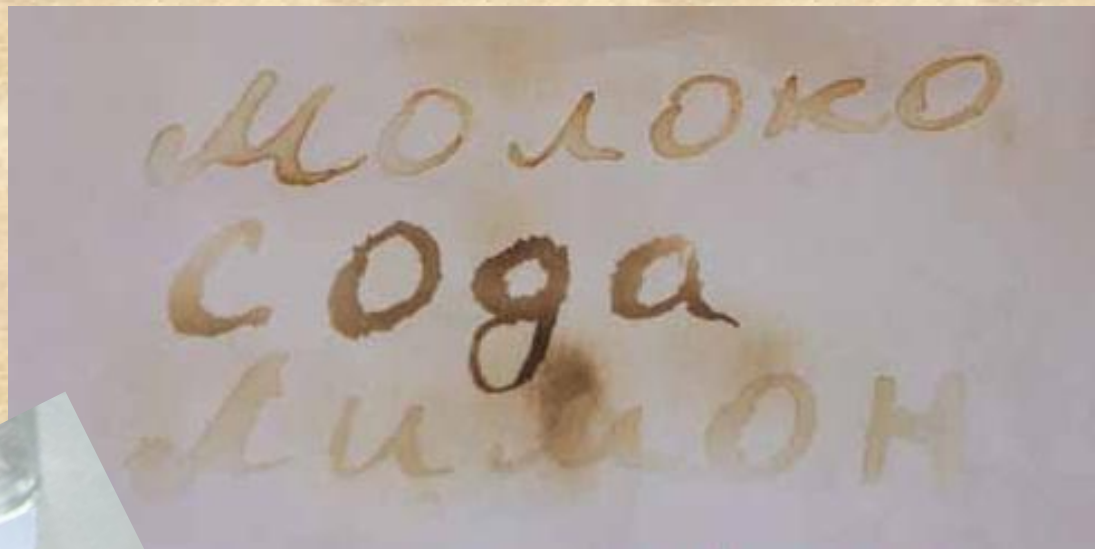 Молоко
Сода
Лимон